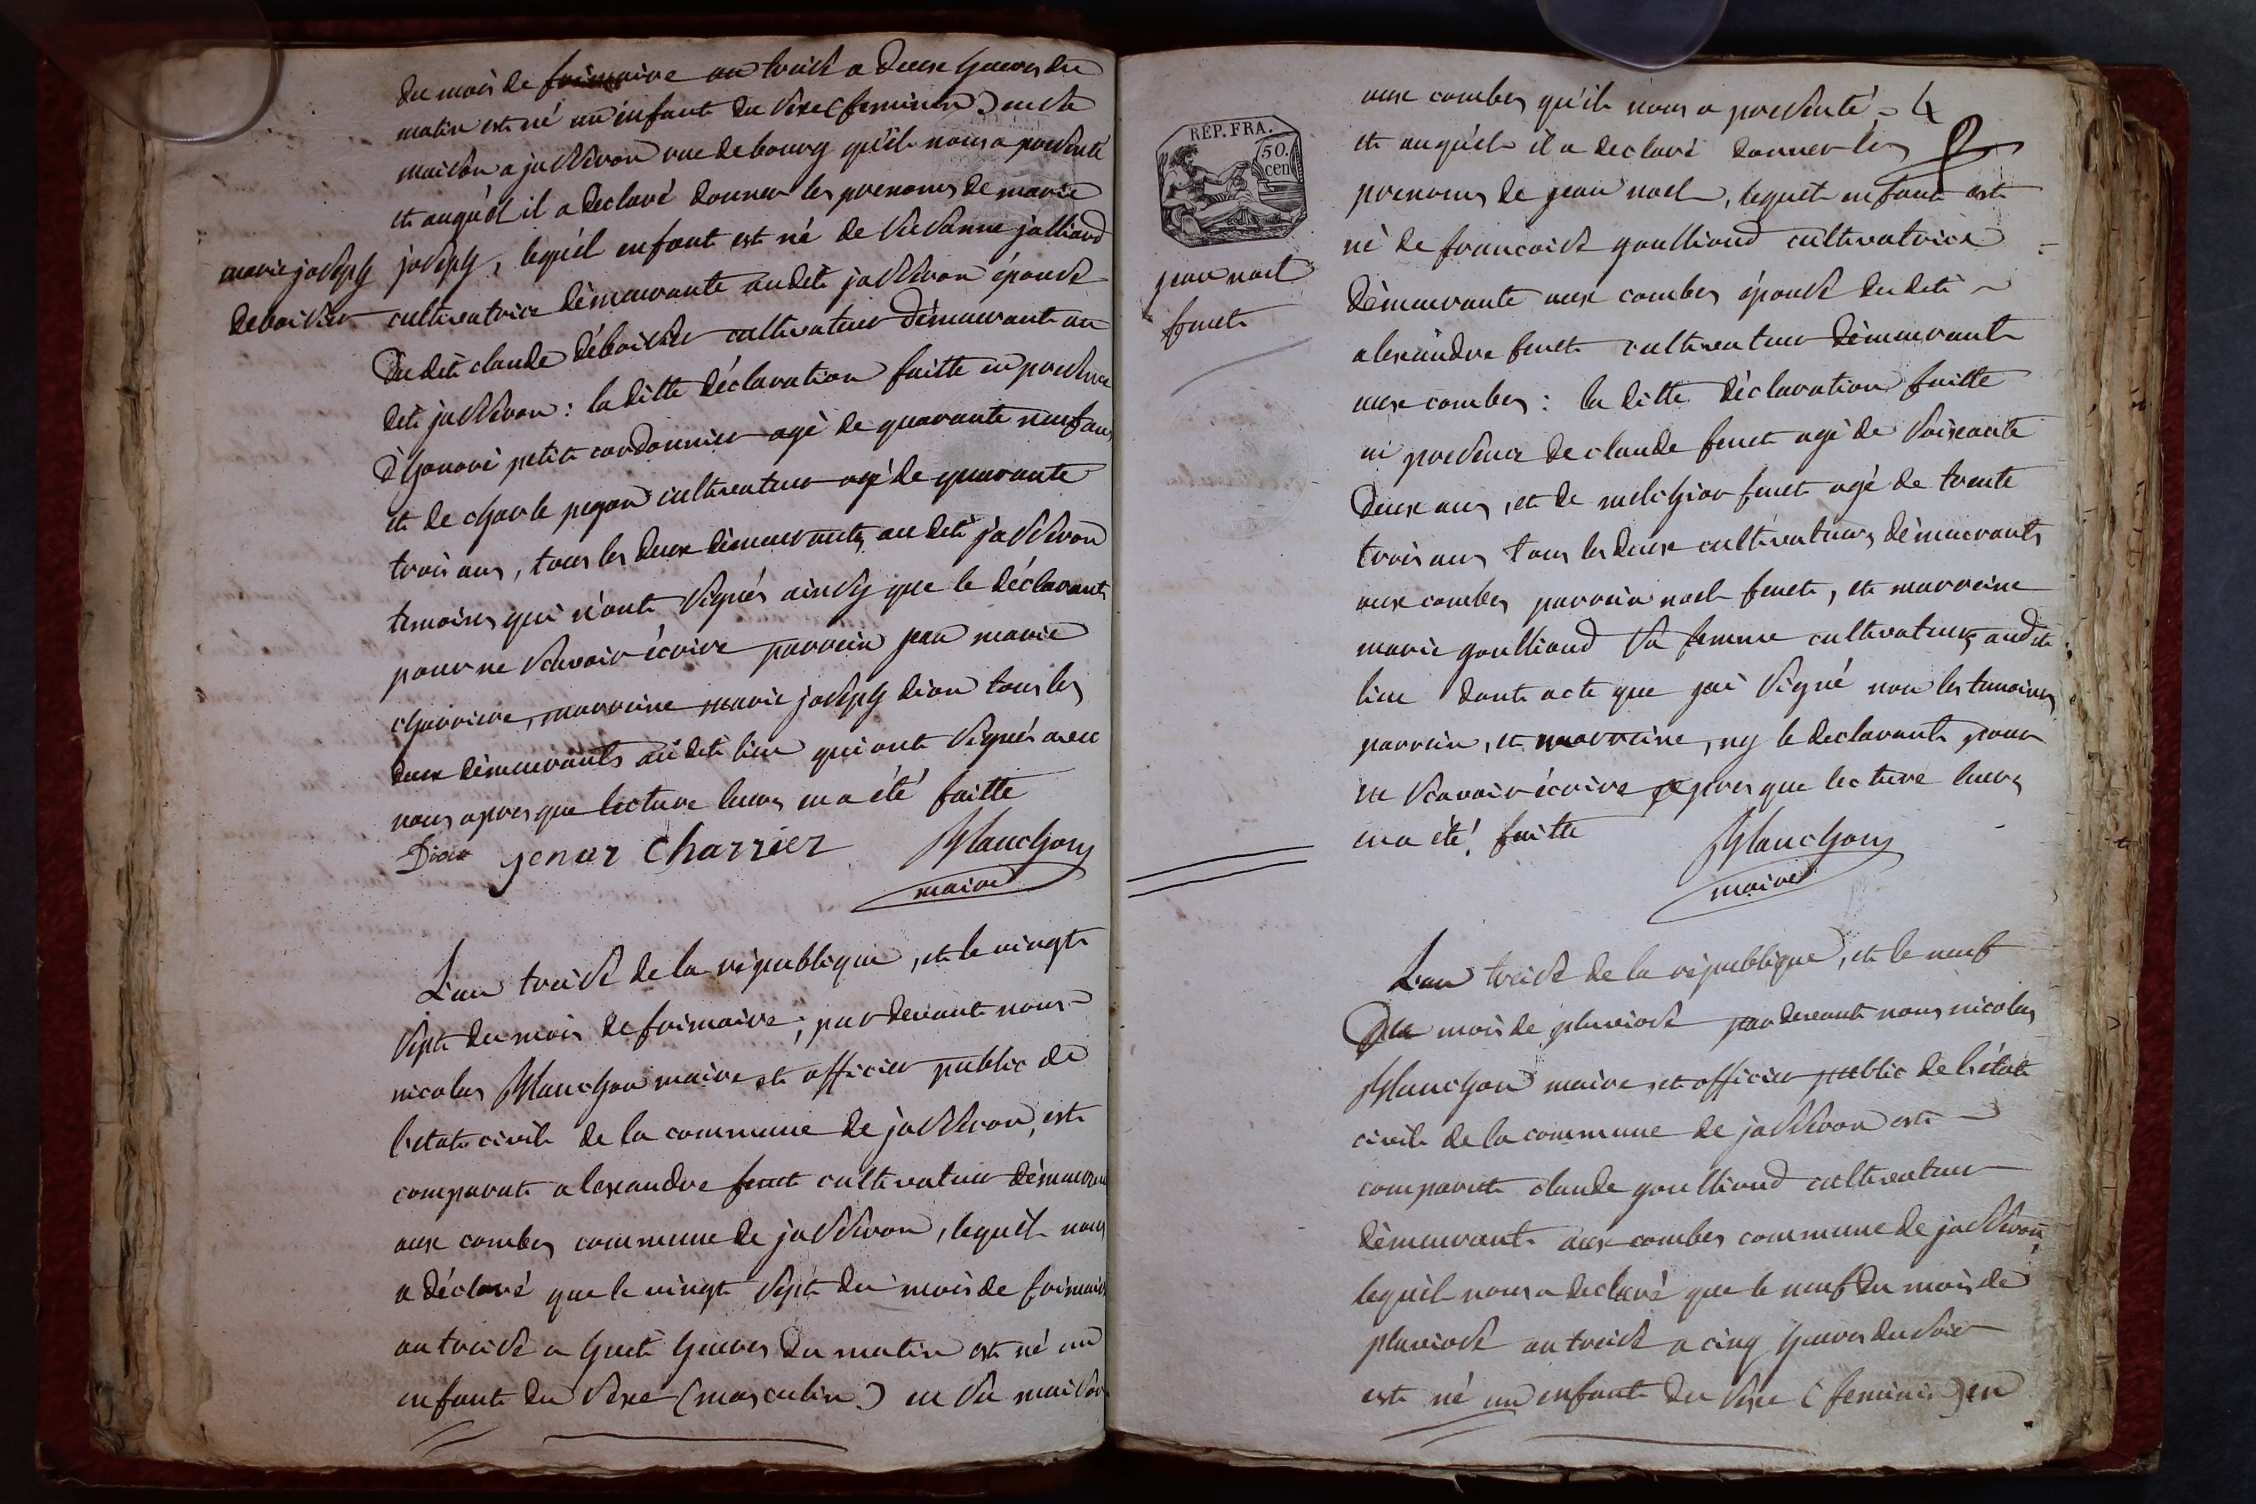 du mois de frimaire an treize a deux heures du
matin est né un enfant du sexe (feminin) en sa
maison a jasseron rue de bourg qu'il nous a presenté
et auquél il a declaré donner les prenoms de marie
marie joseph
deboissier
joseph, lequél enfant est né de susanne jalliard
cultivatrice dèmeurante audit jasseron épouse
du dit claude déboissier cultivateur dèmeurant au
dit jasseron : la ditte déclaration faitte en presence
d'honoré petit cordonnier agé de quarante neuf ans
et de charle pegon cultivateur agé de quarante
trois ans, tous les deux démeurants au dit jasseron
temoins qui n'ont signés ainsy que le déclarant
pour ne scavoir écrire parrein jean marie
charriere, marreine marie joseph dion tous les
deux démeurants au dit lieu qui ont signés avec
nous apres que lecture leurs en a été faitte
Dion Charrier Blanchon
maire
L'an treise de la république, et le vingt
sept du mois de frimaire, par devant nous
nicolas Blanchon maire et officier public de
l'etat civil de la commune de jasseron, est
comparut alexandre feuet cultivateur démeurant
aux combes commune de jasseron, lequél nous
a déclaré que le vingt sept du mois de frimaire
an treise a huit heures du matin est né un
enfant du sexe (masculin) en sa maison
RÉP. FRA.
50.
cen
jean noel
feuet
aux combes qu'il nous a presenté 4
et auquél il a declaré donner les
prenoms de jean noel, lequel enfant est
né de francoise goulliaud cultivatrice
démeurante aux combes épouse du dit
alexandre feuet cultivateur démeurant
aux combes : la ditte déclaration faitte
en presence de claude feuet agé de soixante
deux ans, et de melchior feuet agé de trente
trois ans tous les deux cultivateurs démeurants
aux combes parrein noel feuet, et marreine
marie goulliaud sa femme cultivateurs audit
lieu dont acte que jai signé non les temoins
parrein, et marreine, ny le declarant pour
ne scavoir écrire apres que lecture leurs
en a été faitte Blanchon
maire
L'an treise de la république, et le neuf
Du mois de pluviose par devant nous nicolas
Blanchon maire et officier public de l'état
civil de la commune de jasseron est
comparut claude goulliaud cultivateur
démeurant aux combes commune de jasseron,
lequél nous a declaré que le neuf du mois de
pluviose an treise a cinq heures du soir
est né un enfant du sexe (feminin) en